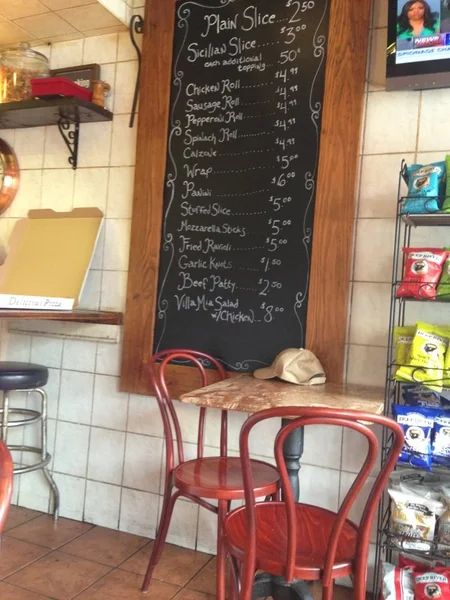 Plain Slice... $2.50
Sicilian Slice.... $3.00
each additional topping... 50¢
Chicken Roll ......... $4.99
Sausage Roll ......... $4.99
Pepperoni Roll ....... $4.99
Spinach Roll ......... $4.99
Calzone
Wrap ........ $5.00
Panini ........ $6.00
Stuffed Slice ........ $5.00
Mozzarella Sticks ..... $5.00
Fried Ravioli ....... $5.00
Garlic Knots ..... $1.50
Beef Patty ..... $2.50
Villa Mia Salad
w/(Chicken)... $8.00
Delicious Pizza
NEWS